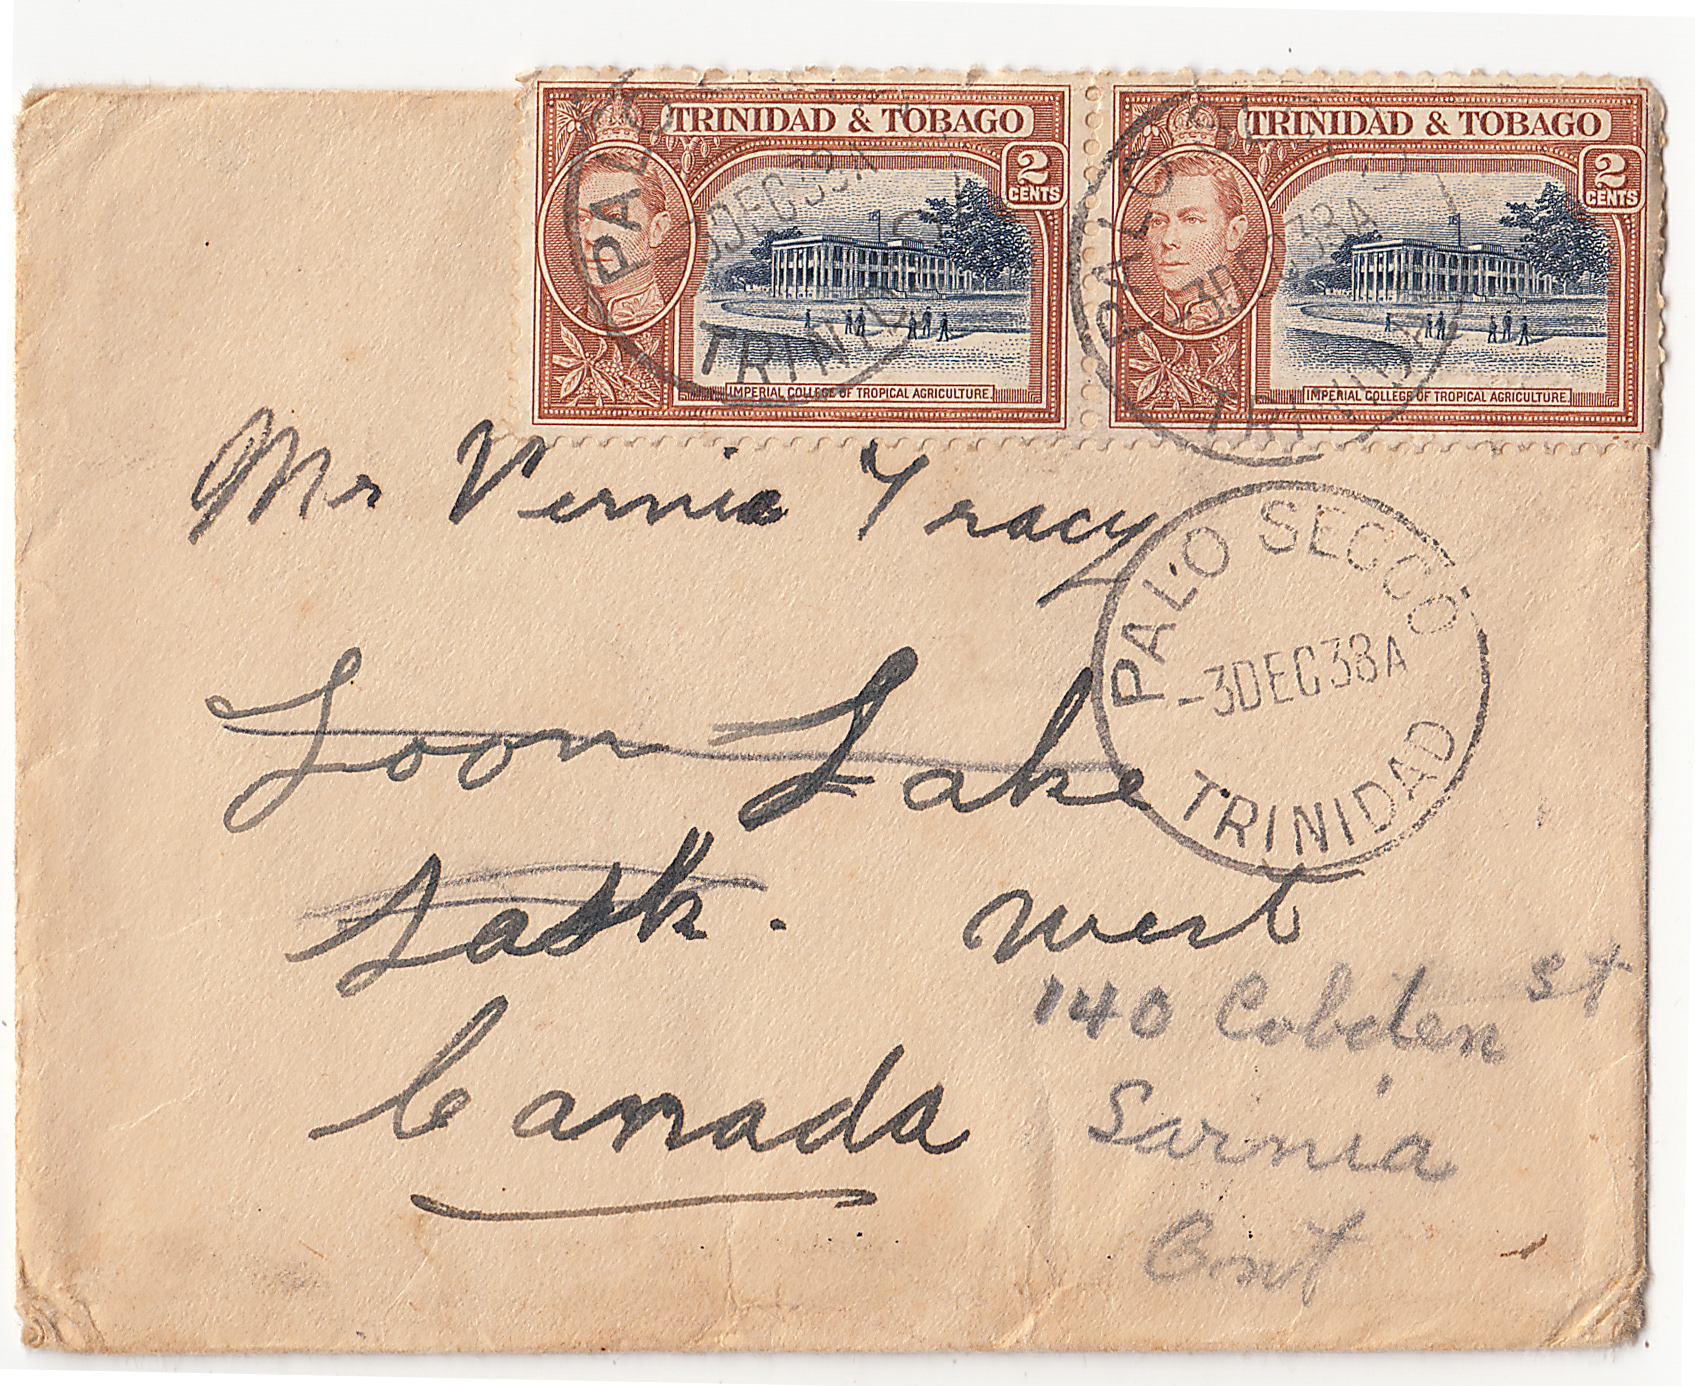 TRINIDAD & TOBAGO
2
CENTS
IMPERIAL COLLEGE OF TROPICAL AGRICULTURE.
TRINIDAD & TOBAGO
2
CENTS
IMPERIAL COLLEGE OF TROPICAL AGRICULTURE.
PALO
3DEC38A
TRINIDAD
PALO SE
-3DEC38A
TRINIDAD
Mr Vernie Tracy
PALO SECCO
-3DEC38A
TRINIDAD
Loon Lake
Sask. West
Canada
140 Cobden St
Sarnia
Ont